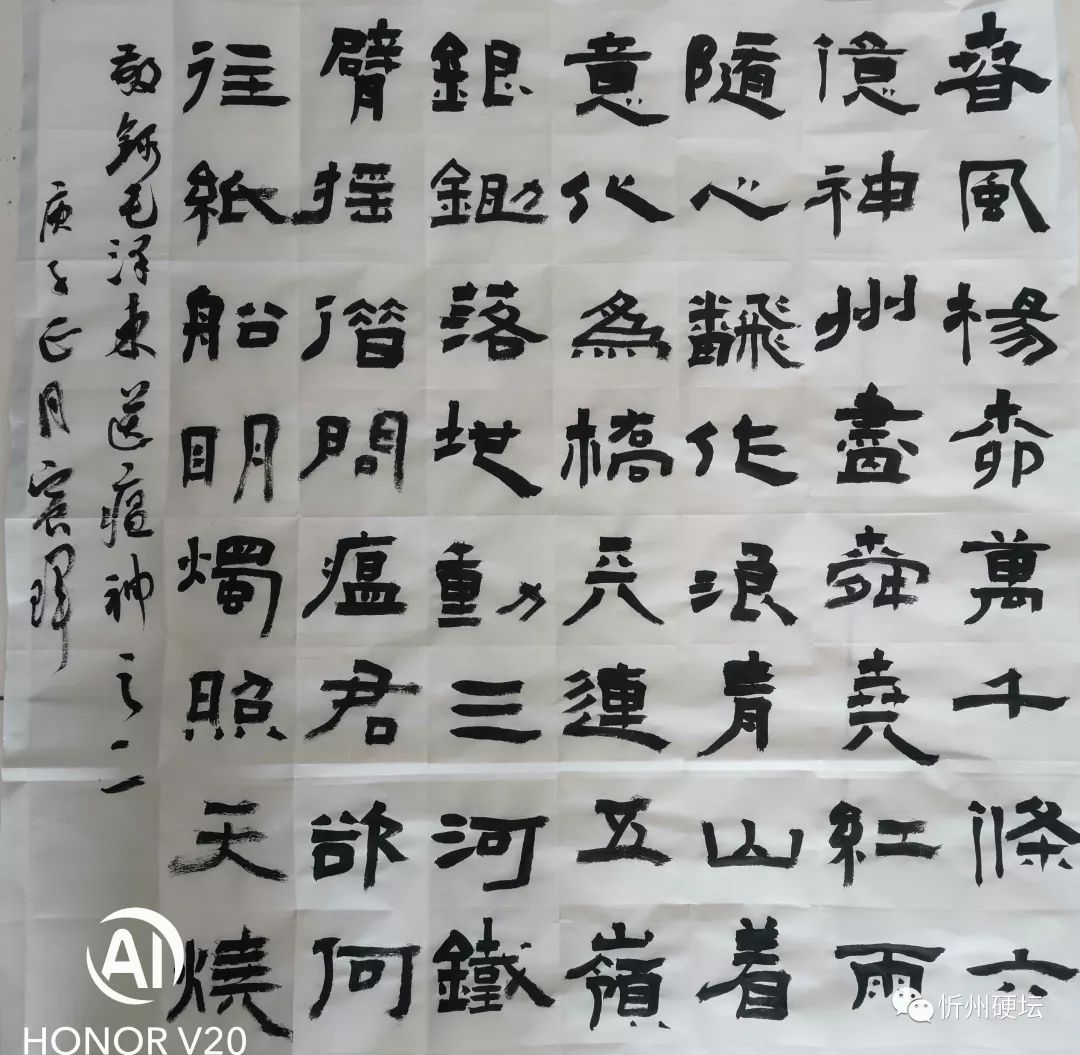 春風楊柳萬千條六
億神州盡舜堯紅雨
隨心飜作浪青山着
意化為橋天連五嶺
銀鋤落地動三河鐵
臂摇借問瘟君欲何
往紙船明燭照天燒
敬錄毛泽東送瘟神之二
庚子正月
AI
HONOR V20
忻州硬坛